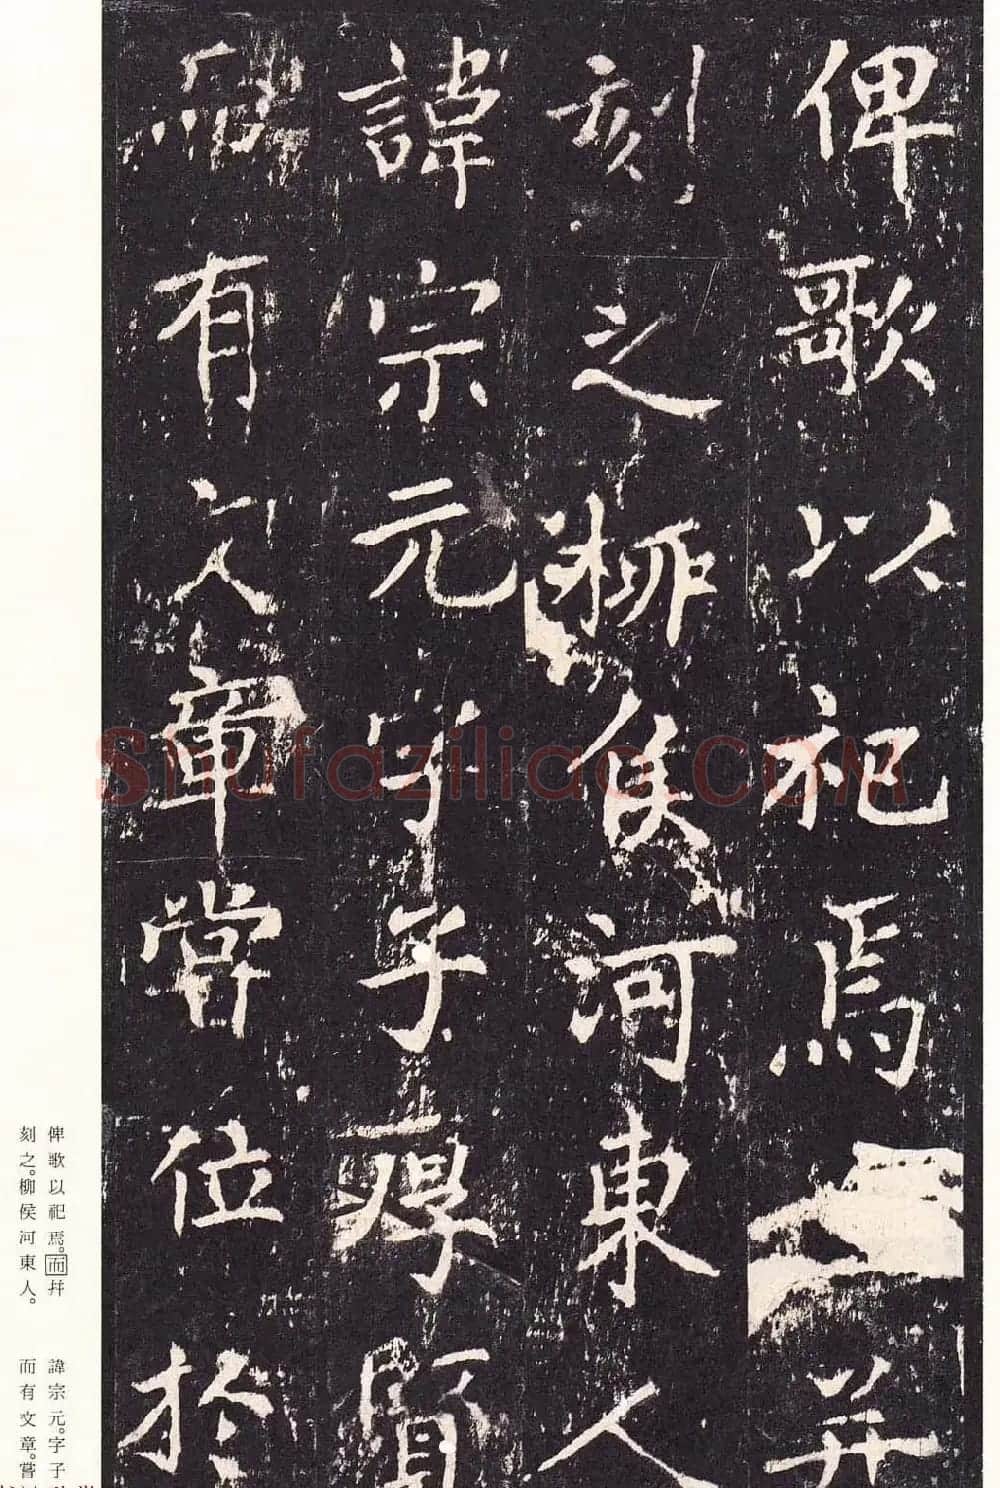 俾歌以祀焉并
刻之柳侯河東人
諱宗元字子厚賢
而有文章嘗位於
俾歌以祀焉。而幷
刻之。柳侯河東人。
諱宗元。字子
而有文章。嘗
Shufaziliao.COM